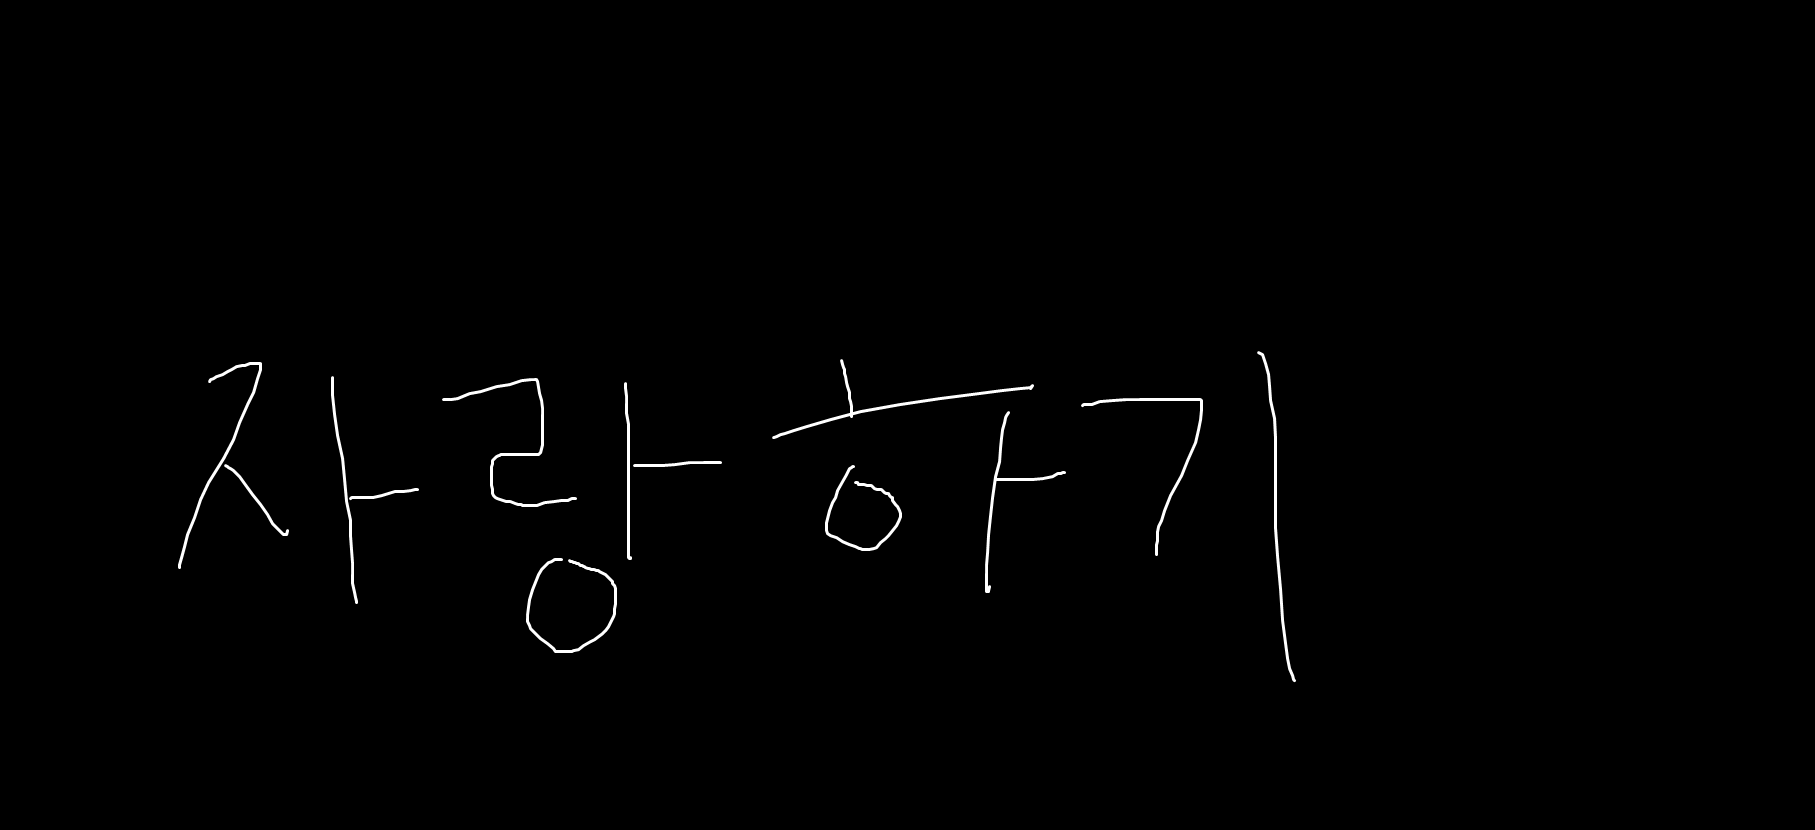 자랑하기